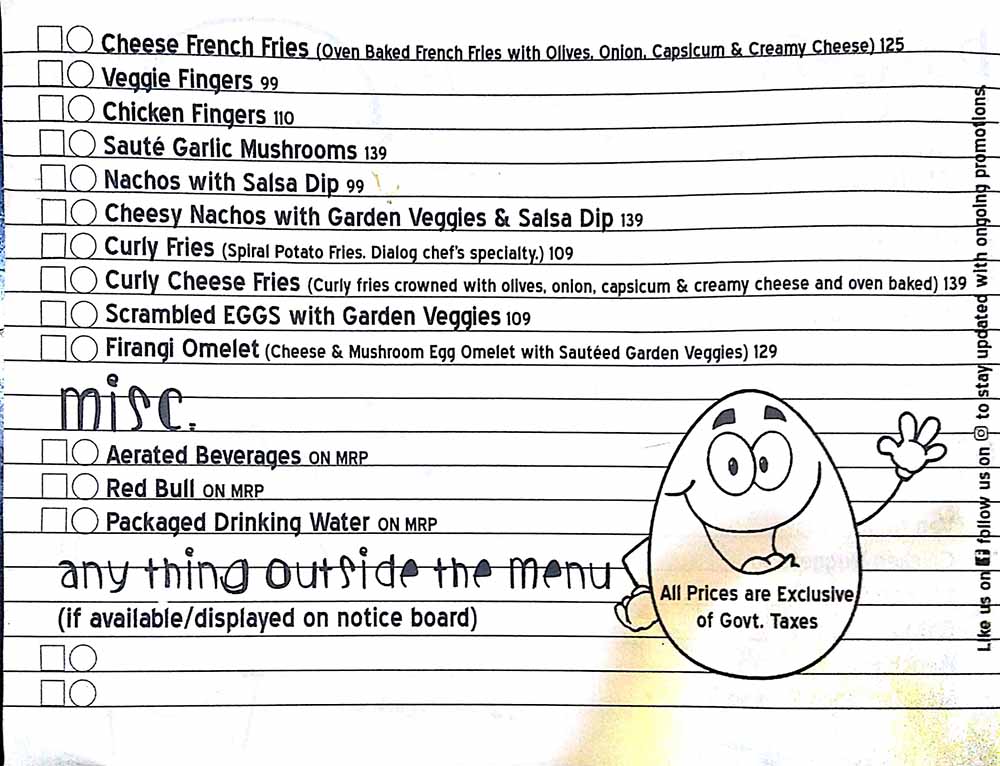 Cheese French Fries (Oven Baked French Fries with Olives, Onion, Capsicum & Creamy Cheese) 125
Veggie Fingers 99
Chicken Fingers 110
Sauté Garlic Mushrooms 139
Nachos with Salsa Dip 99
Cheesy Nachos with Garden Veggies & Salsa Dip 139
Curly Fries (Spiral Potato Fries. Dialog chef's specialty.) 109
Curly Cheese Fries (Curly fries crowned with olives, onion, capsicum & creamy cheese and oven baked) 139
Scrambled EGGS with Garden Veggies 109
Firangi Omelet (Cheese & Mushroom Egg Omelet with Sautéed Garden Veggies) 129
misc.
Aerated Beverages ON MRP
Red Bull ON MRP
Packaged Drinking Water ON MRP
any thing outside the menu
(if available/displayed on notice board)
All Prices are Exclusive
of Govt. Taxes
Like us on follow us on to stay updated with ongoing promotions.